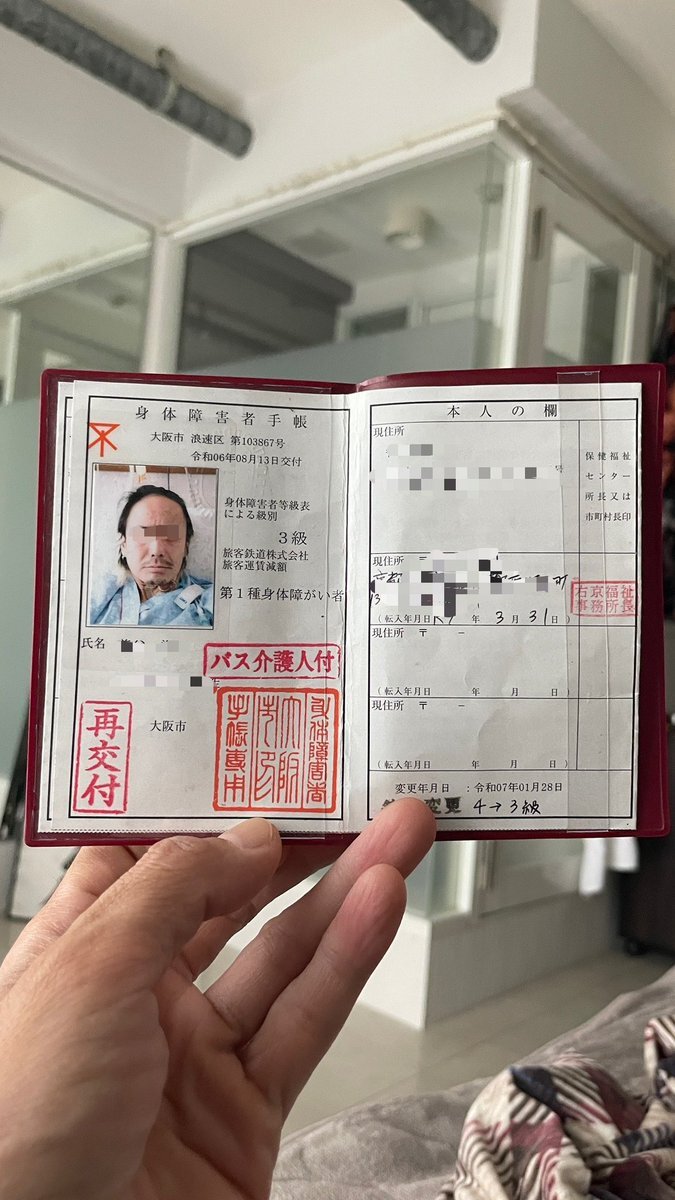 身体障害者手帳
大阪市 浪速区 第103867号
令和06年08月13日交付
身体障害者等級表
による級別
3級
旅客鉄道株式会社
旅客運賃減額
第1種身体障がい者
氏名
バス介護人付
再交付
大阪市
身体障害者
大阪市
手帳専用
本人の欄
現住所
号
保健福祉
センター
所長又は
市町村長印
現住所 〒
町
(転入年月日 3月31日)
右京福祉
事務所長
現住所 〒 −
(転入年月日 年 月 日)
現住所 〒 −
(転入年月日 年 月 日)
変更年月日 :令和07年01月28日
変更 4→3級